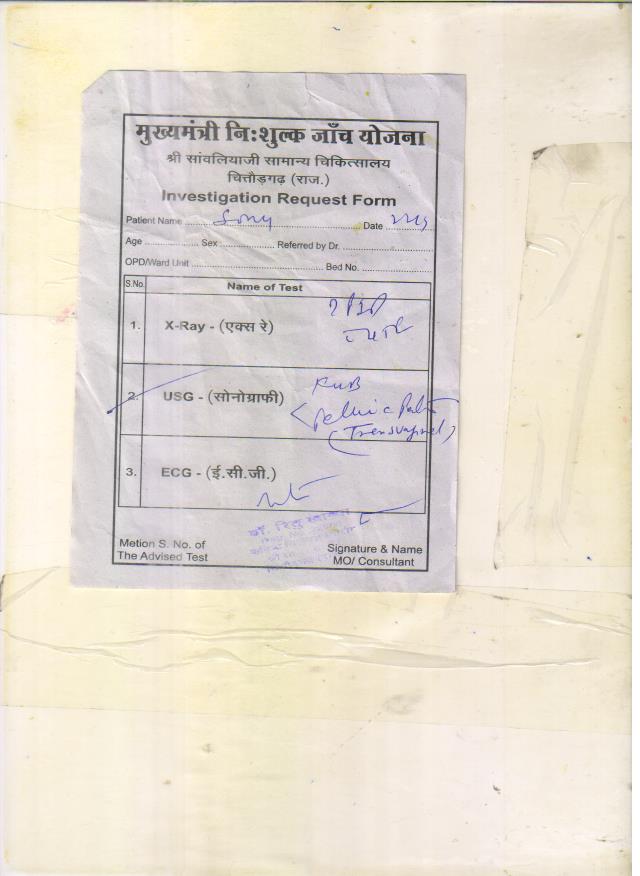 मुख्यमंत्री निःशुल्क जाँच योजना
श्री सांवलियाजी सामान्य चिकित्सालय
चित्तौड़गढ़ (राज.)
Investigation Request Form
Patient Name Sony Date
Age Sex Referred by Dr.
OPD/Ward Unit Bed No.
S.No. Name of Test
1. X-Ray - (एक्स रे)
KUB
2. USG - (सोनोग्राफी)
Pelvic
(Transvaginal)
3. ECG - (ई.सी.जी.)
डॉ.
Metion S. No. of
The Advised Test
Signature & Name
MO/ Consultant